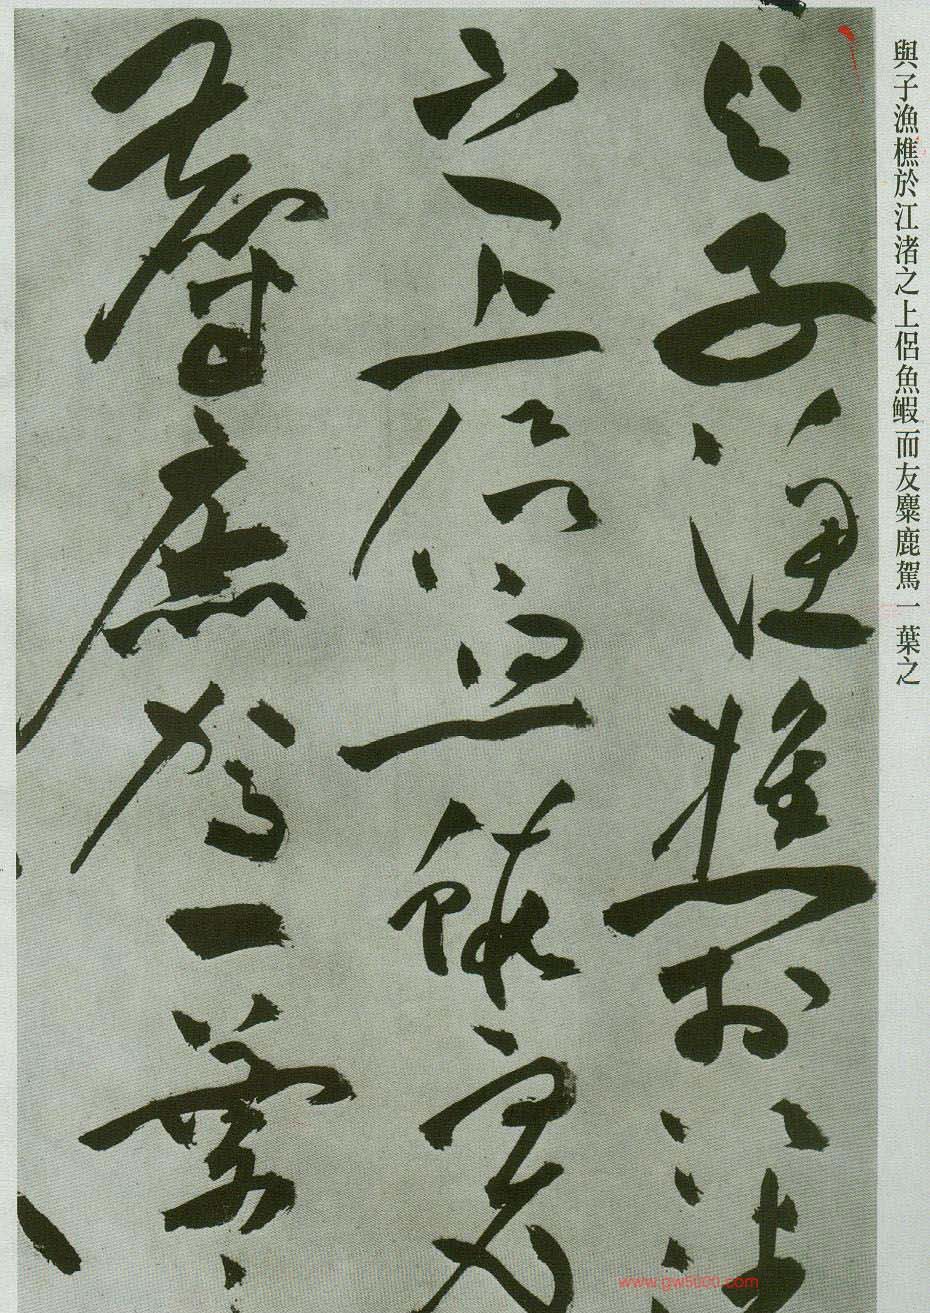 與子漁樵於江渚之上侶魚鰕而友麋鹿駕一葉之
与子渔樵於江
之上侣鱼鰕而友
麋鹿驾一葉
www.gw5000.com